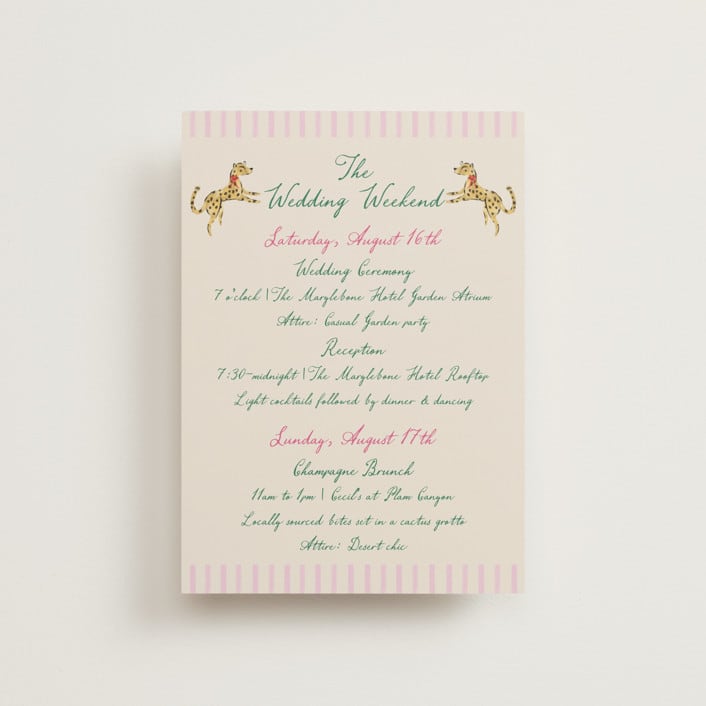 The
Wedding Weekend
Saturday, August 16th
Wedding Ceremony
7 o'clock | The Marylebone Hotel Garden Atrium
Attire: Casual Garden party
Reception
7:30-midnight | The Marylebone Hotel Rooftop
Light cocktails followed by dinner & dancing
Sunday, August 17th
Champagne Brunch
11am to 1pm | Cecil's at Plam Canyon
Locally sourced bites set in a cactus grotto
Attire: Desert chic